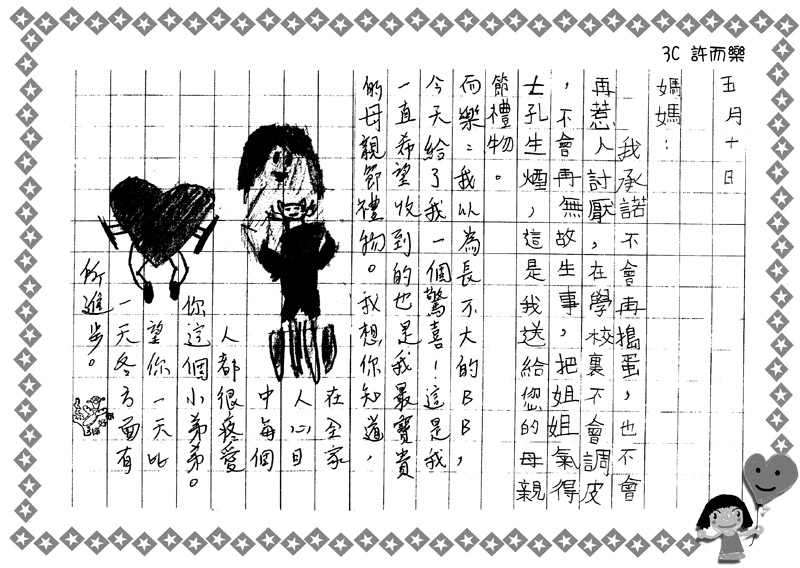 3C 許而樂
五月十日
媽媽：
我承諾不會再搗蛋，也不會
再惹人討厭，在學校裏不會調皮
，不會再無故生事，把姐姐氣得
七孔生煙，這是我送給您的母親
節禮物。
而樂：我以為長不大的BB，
今天給了我一個驚喜！這是我
一直希望收到的也是我最寶貴
的母親節禮物。我想你知道，
在全家
人心目
中每個
人都很疼愛
你這個小弟弟。
望你一天比
一天各方面有
所進步。